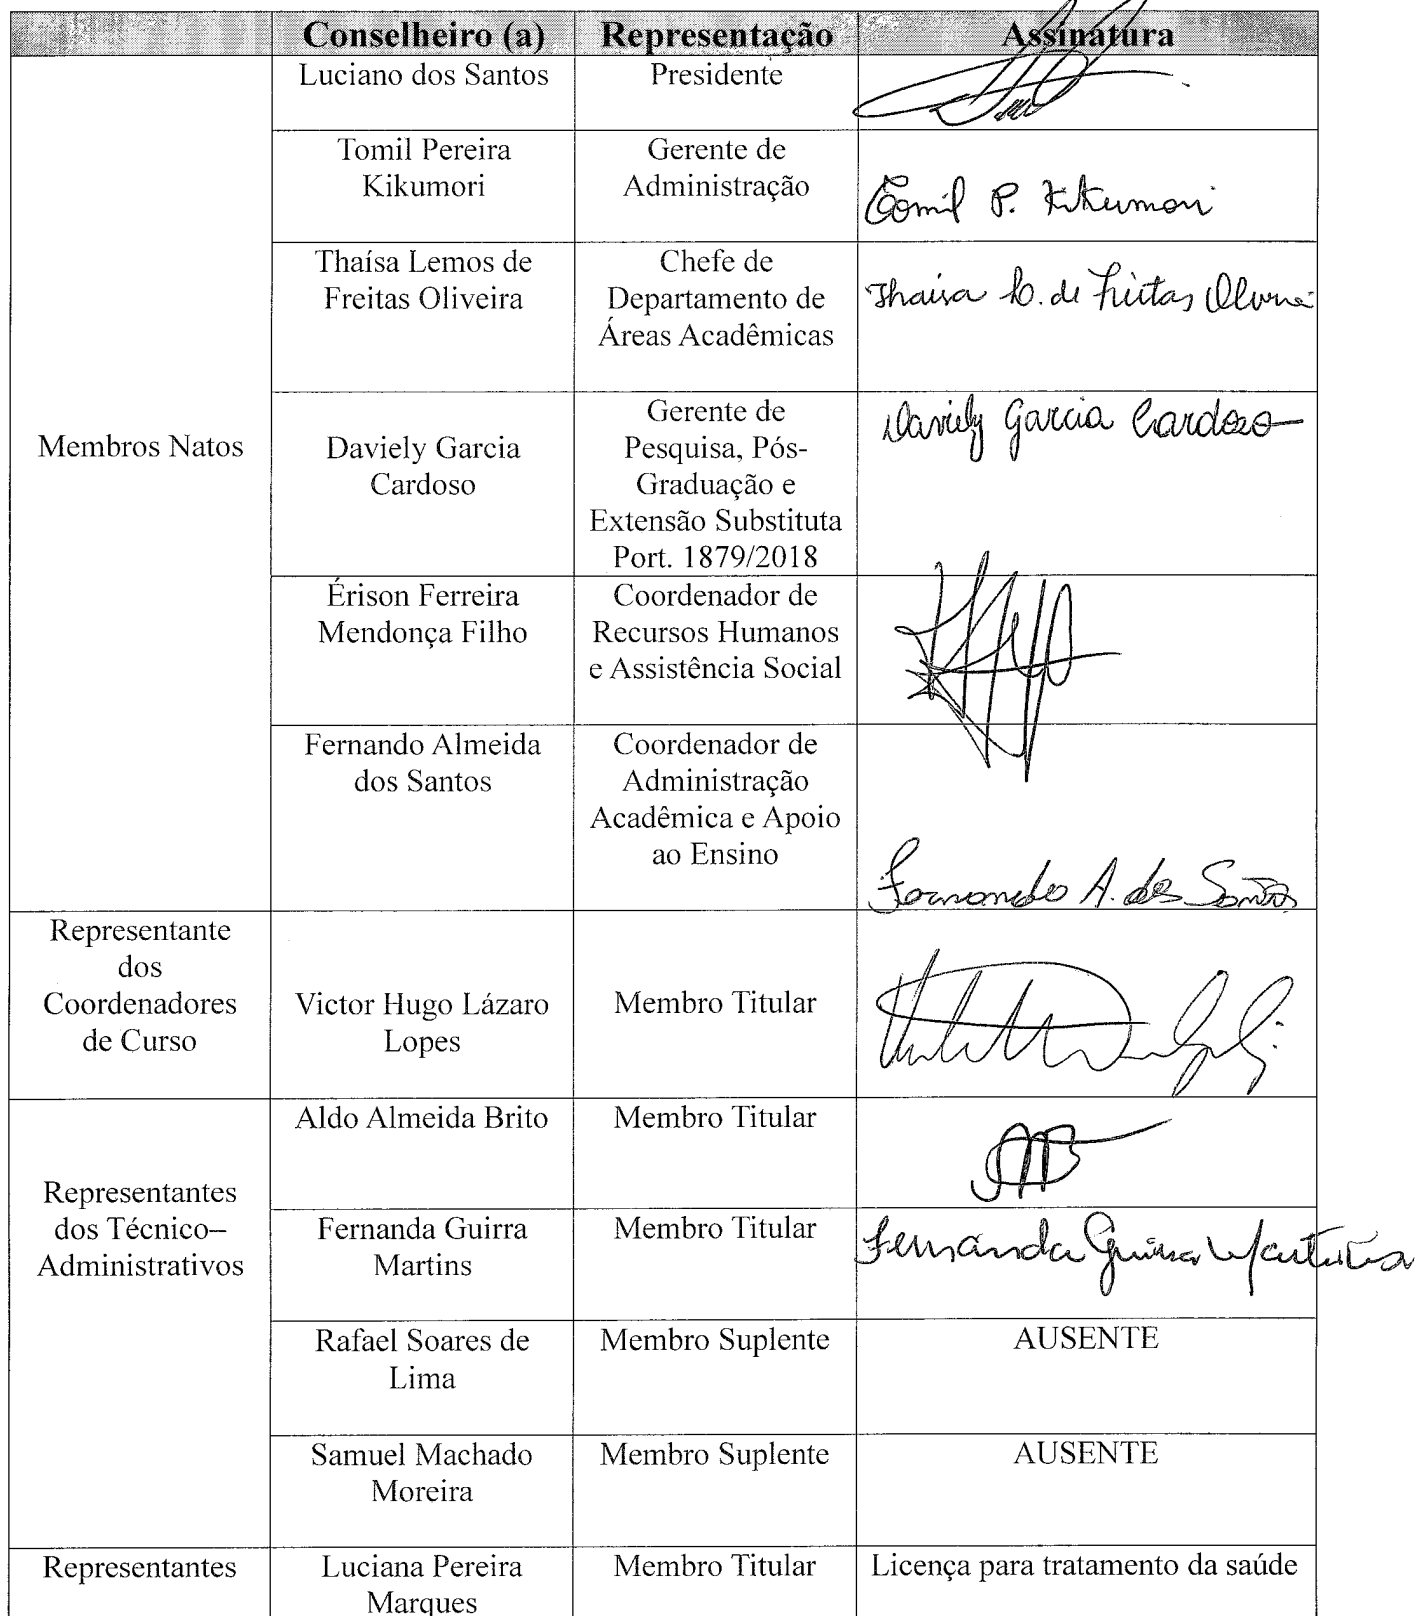 Conselheiro (a) Representação Assinatura
Luciano dos Santos Presidente
Tomil Pereira Gerente de
Kikumori Administração
Tomil P. Kikumori
Thaísa Lemos de Chefe de
Freitas Oliveira Departamento de
Áreas Acadêmicas
Thaísa L. de Freitas Oliveira
Membros Natos
Daviely Garcia
Cardoso
Gerente de
Pesquisa, Pós-
Graduação e
Extensão Substituta
Port. 1879/2018
Daviely Garcia Cardoso
Érison Ferreira Coordenador de
Mendonça Filho Recursos Humanos
e Assistência Social
Fernando Almeida Coordenador de
dos Santos Administração
Acadêmica e Apoio
ao Ensino
Fernando A. dos Santos
Representante
dos
Coordenadores
de Curso
Victor Hugo Lázaro
Lopes
Membro Titular
Representantes
dos Técnico–
Administrativos
Aldo Almeida Brito Membro Titular
AAB
Fernanda Guirra Membro Titular
Martins
Fernanda Guirra Martins
Rafael Soares de Membro Suplente AUSENTE
Lima
Samuel Machado Membro Suplente AUSENTE
Moreira
Representantes Luciana Pereira Membro Titular Licença para tratamento da saúde
Marques